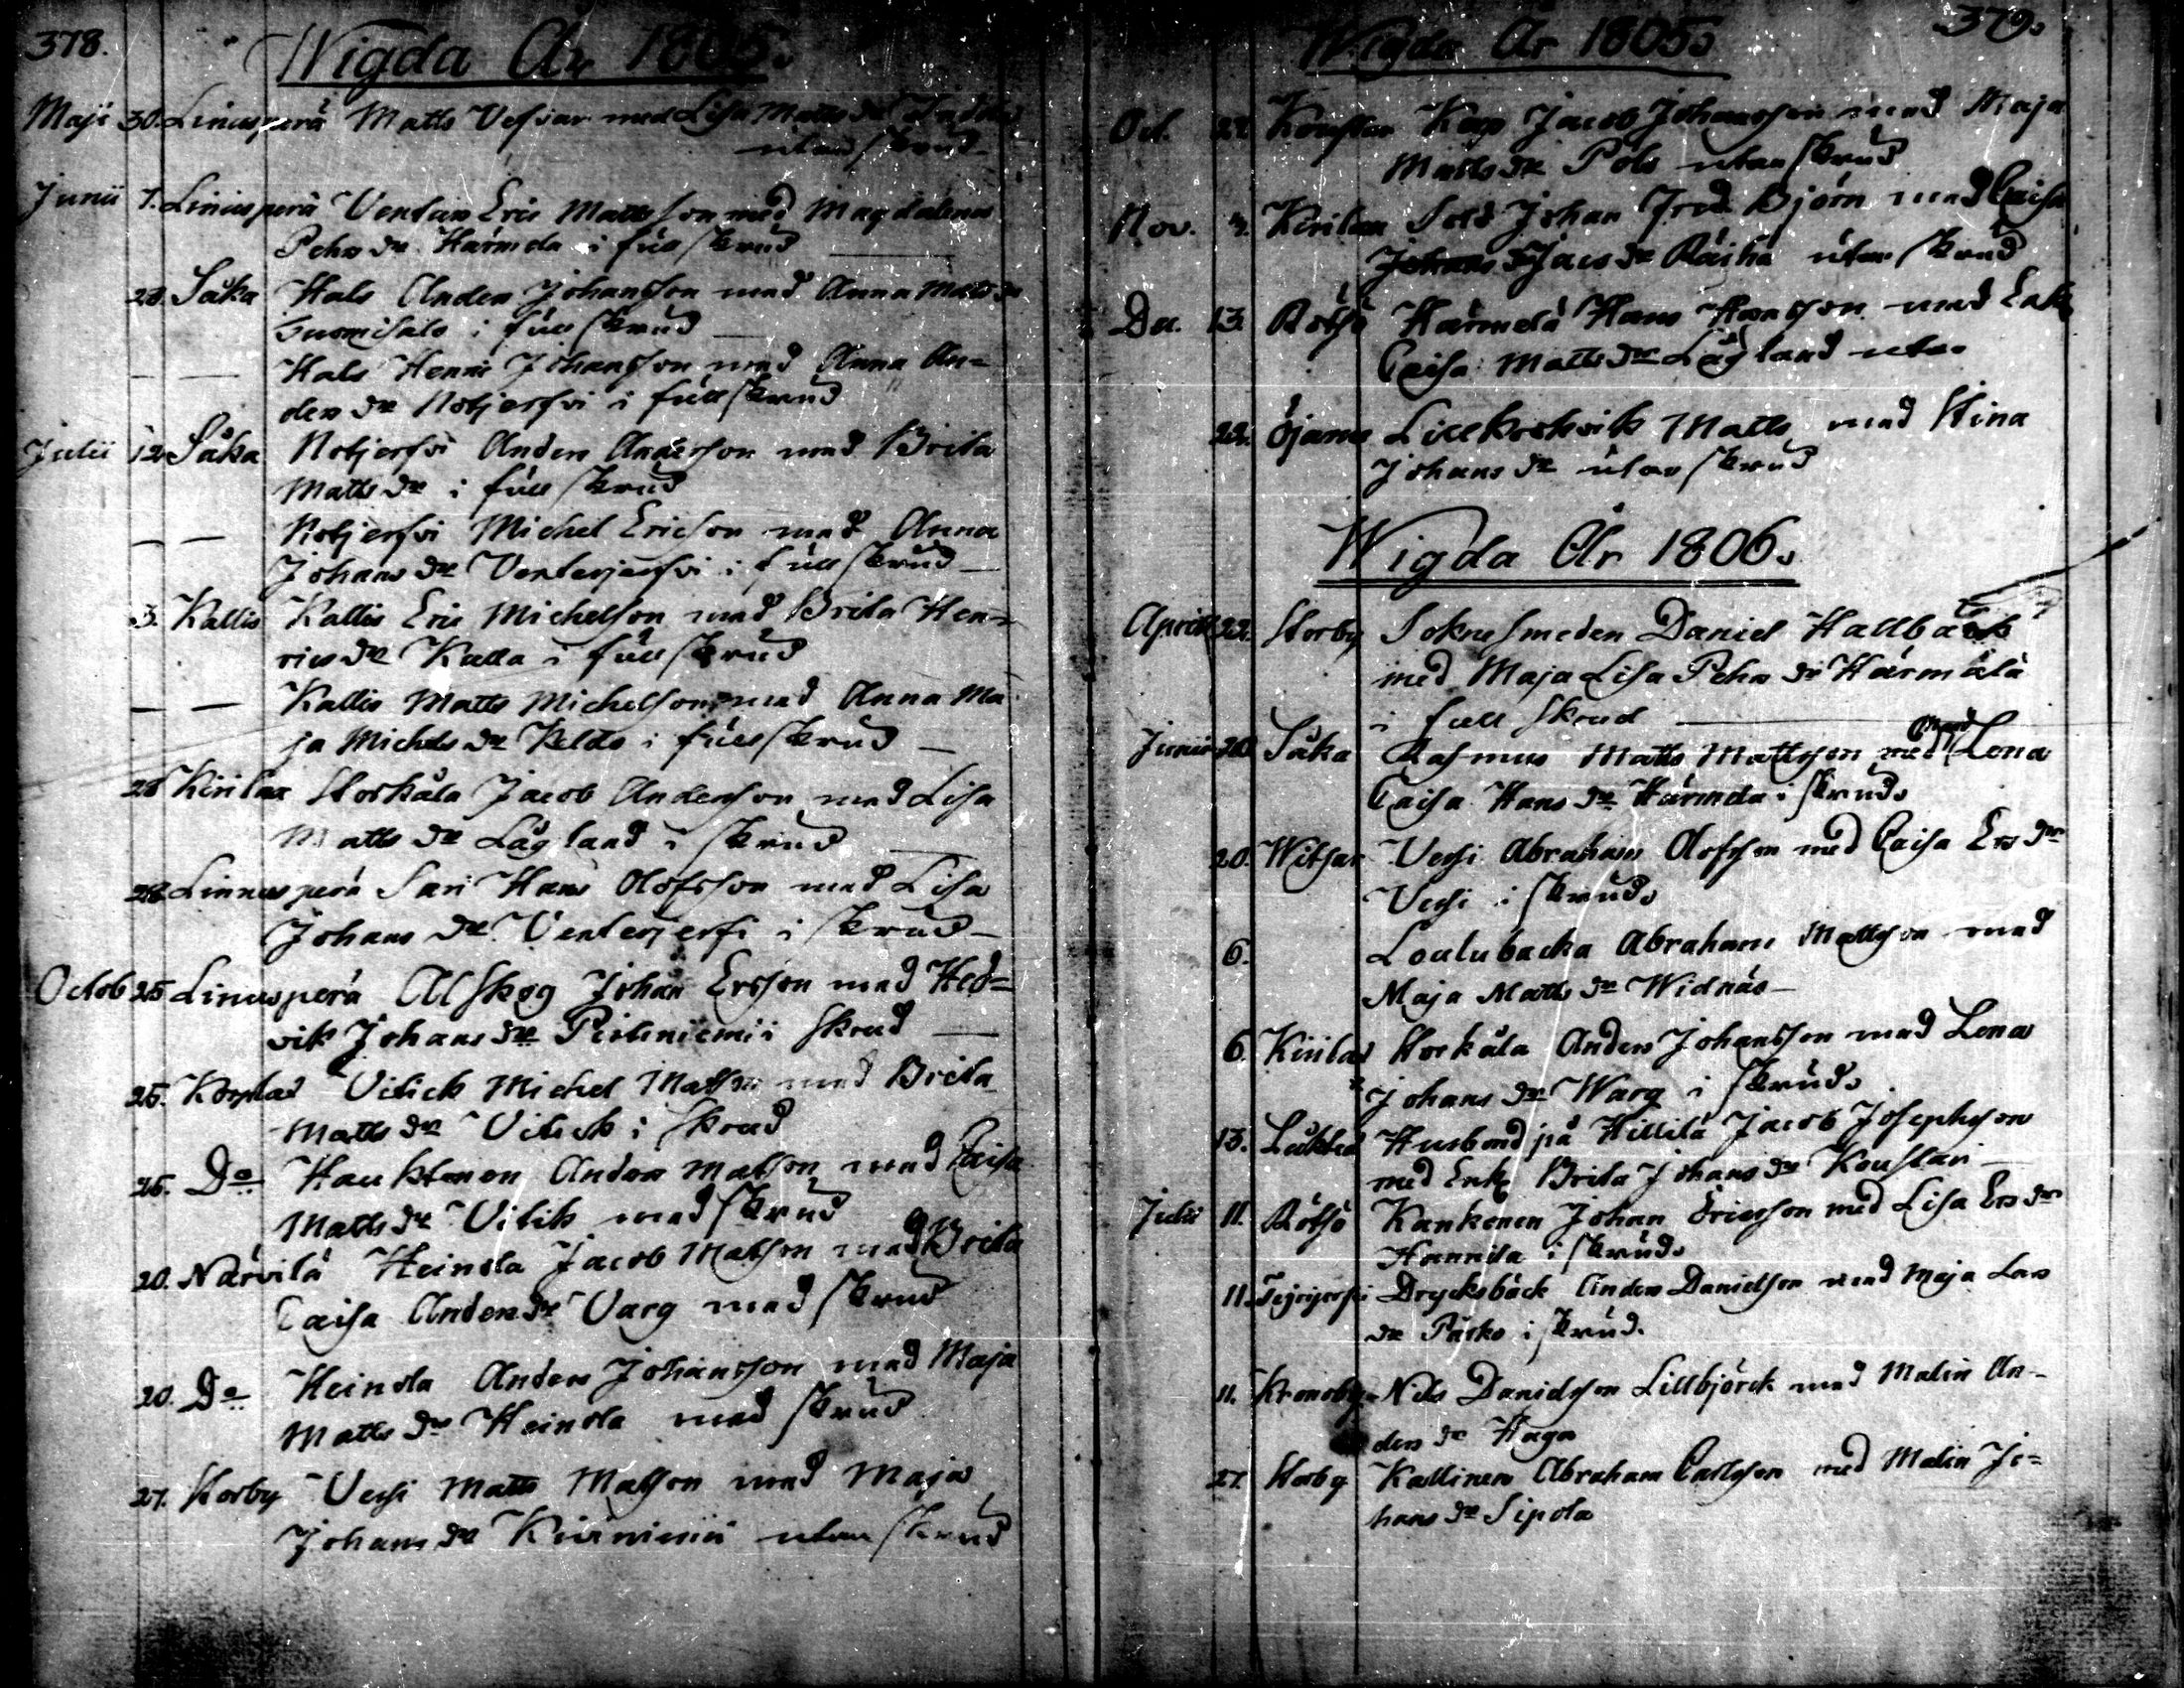 378.
Wigda År 1805.
Maji 30. Linusperä Matts Vessar med Lisa Matts dr
utan skrud
Junii 7. Linusperä Ventus Eric Mattsson med Magdalena
Pehrs dr Härmela i full skrud
23. Såka Hals Anders Johansson med Anna Matts dr
Suomisalo i full skrud
— — Hals Henric Johansson med Anna An=
ders dr Notjerfvi i full skrud
Julii 12 Såka Notjerfvi Anders Anderson med Brita
Matts dr i full skrud
— — Notjerfvi Michel Ericson med Anna
Johans dr Venterjerfvi i full skrud —
3. Kallis Kallis Eric Michelson med Brita Hen=
rics dr Kalla i full skrud
— — Kallis Matts Michelson med Anna Ma
ja Michels dr Keldo i full skrud —
28 Kirilax Storkåla Jacob Anderson med Lisa
Matts dr Lågland i skrud —
28. Linnusperä Sari Hans Olofsson med Lisa
Johans dr Venterjerfi i skrud —
Octob 25 Linusperä Alskog Johan Ersson med Hed=
vik Johans dr Pirkniemi i skrud —
25. Korplax Vitick Michel Matsson med Brita
Matts dr Vitick i skrud
26. Do Hauktonen Anders Matson med Caisa
Matts dr Vitik med skrud
20. Närvilä Heinola Jacob Matson med Brita
Caisa Anders dr Varg med skrud
20. Do Heinola Anders Johansson med Maja
Matts dr Heinola med skrud
27. Storby Vessi Matts Matson med Maja
Johans dr Kiviniemi utan skrud
379.
Wigda År 1805.
Oct. 27. Kouslar Kap Jacob Johansson med Maja
Matts dr Polo utan skrud
Nov. 4. Kirilax Sold Johan Fred. Björn med Caisa
Johans Jacs dr Räihä utan skrud
Dec. 13. Rötsö Härmelä Hans Hansson med Enk
Caisa Matts dr Lågland utan
22. Öjanes Lillkrokvik Matts med Stina
Johans dr utan skrud
Wigda År 1806.
April 22. Storby Soknesmeden Daniel Hallbäck
med Maja Lisa Pehrs dr Härmälä
i full skrud —
Junii 20. Såka Rasmus Matts Mattsson med Lena
Caisa Hans dr Härmela i skrud.
20. Witsar Vessi Abraham Olofsson med Caisa Ers dr
Vessi i skrud.
6. Loulubacka Abraham Mattsson med
Maja Matts dr Widnäs —
6. Kirilax Storkåla Anders Johansson med Lena
Johans dr Warg i skrud.
13. Husbond på Hillilä Jacob Josephsson
med Enk Brita Johans dr Kouslari —
Julii 11. Rötsö Kankonen Johan Ericsson med Lisa Ers dr
Hannila i skrud.
11. Drycksbäck Anders Danielson med Maja Lars
dr Päsko i skrud.
11. Kronoby Nils Danielsson Lillbjörck med Malin An-
ders dr Haga
27. Storby Kallinen Abraham Carlsson med Malin Jo=
hans dr Sipola